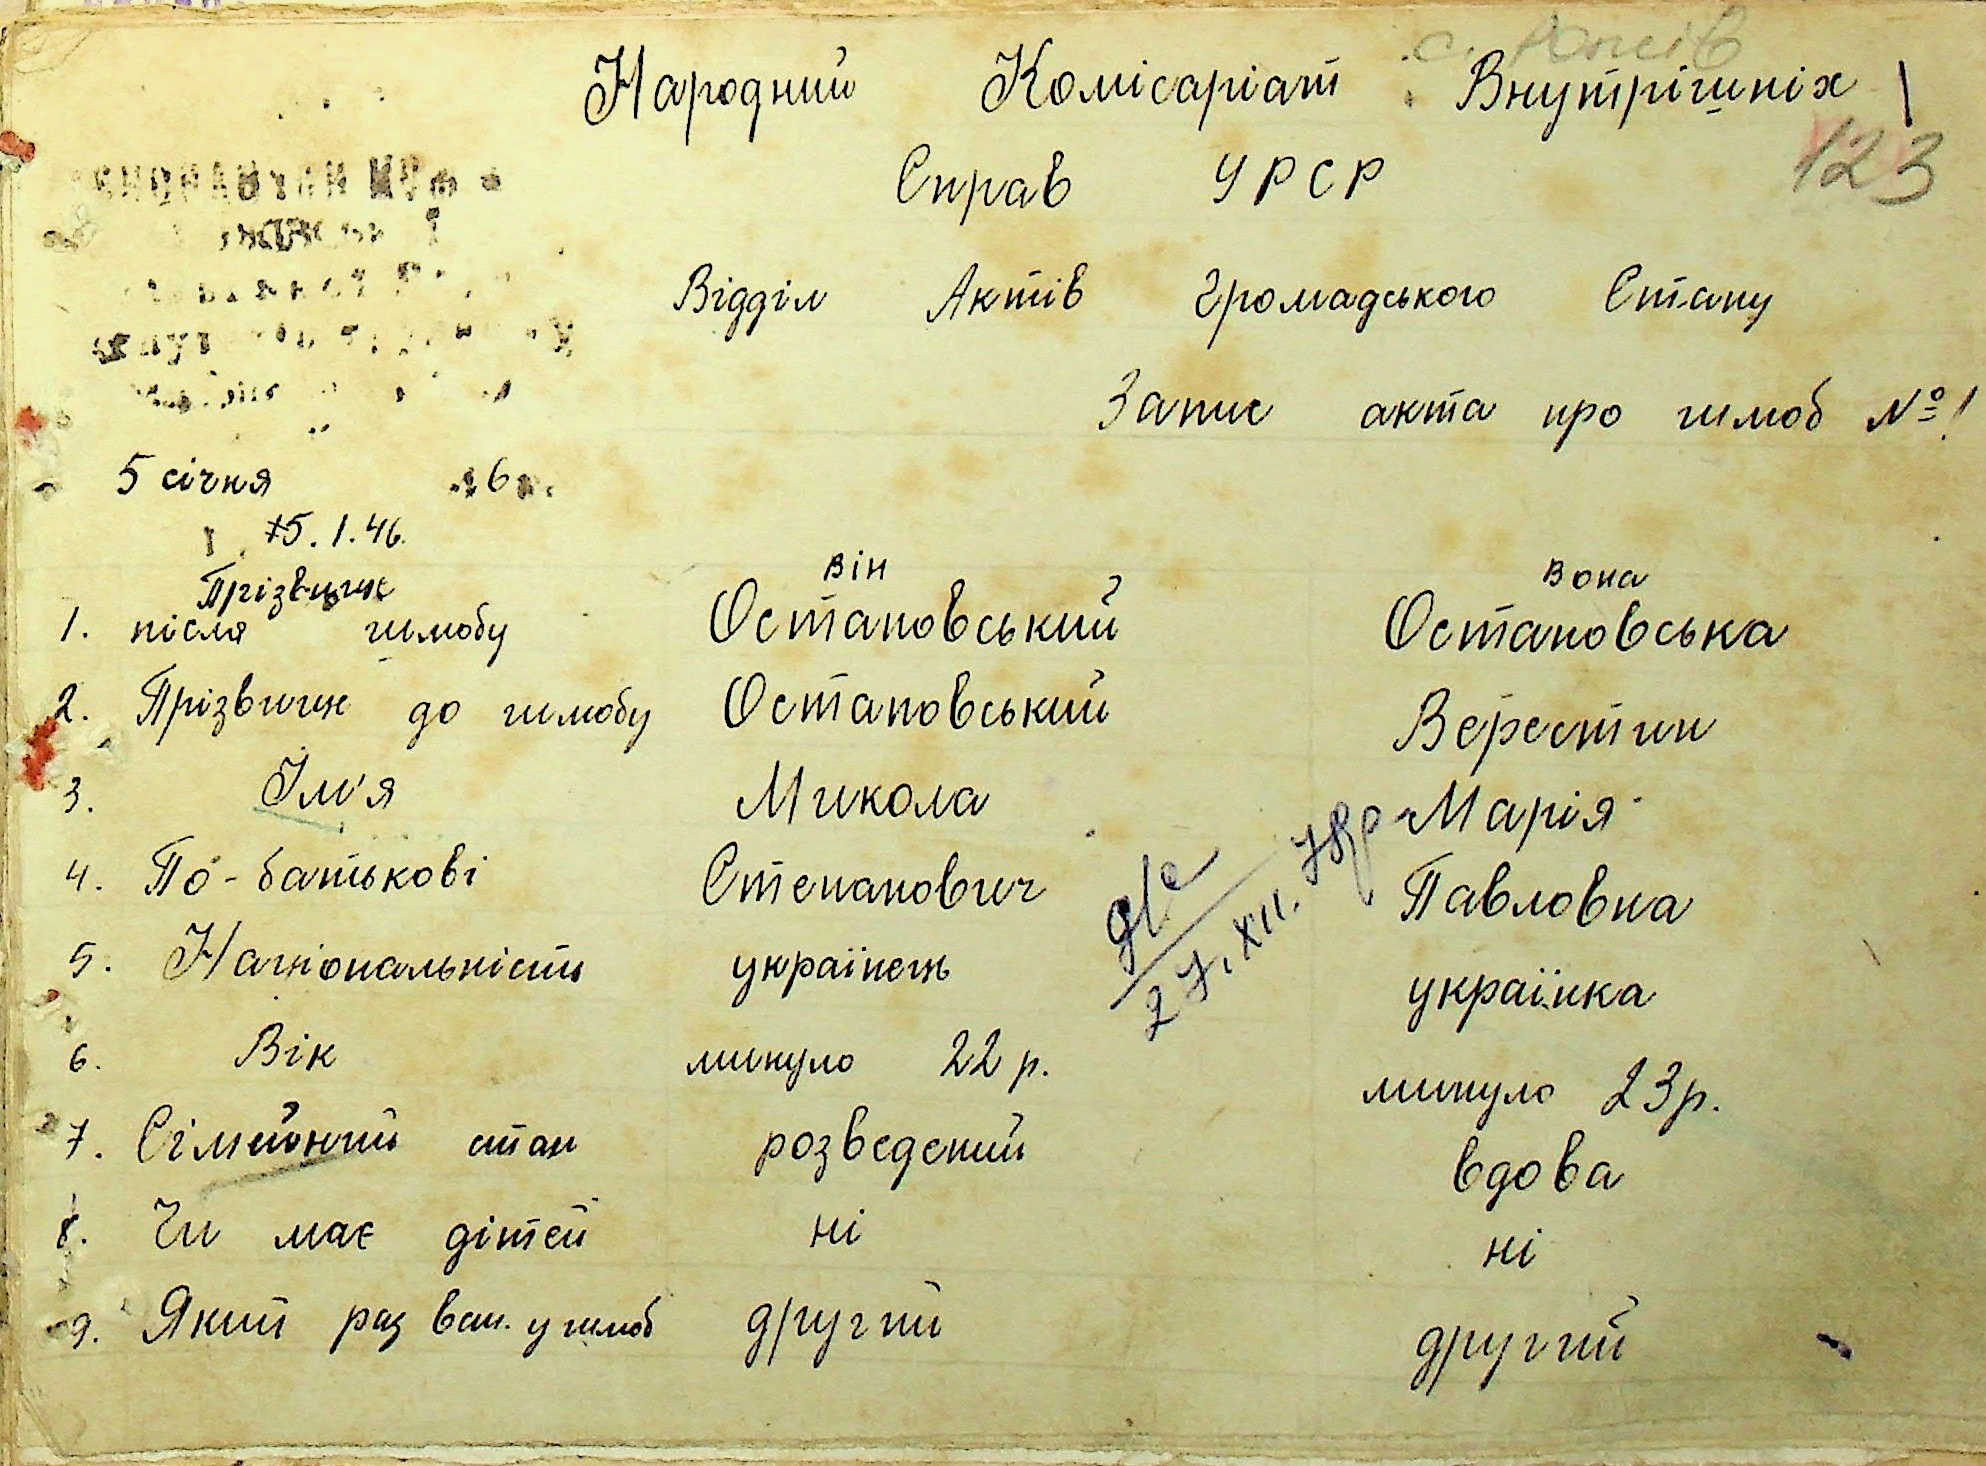 Народний Комісаріат Внутрішніх
123
Справ УРСР
Відділ Актів Громадського Стану
Запис акта про шлюб № 1
5 січня 6
5.1.46.
він вона
Прізвище
1. після шлюбу Остаповський Остаповська
2. Прізвище до шлюбу Остаповський Верестин
3. Ім'я Микола Марія
4. По-батькові Степанович Павловна
5. Національність українець українка
27.XII.
6. Вік минуло 22 р. минуло 23 р.
7. Сімейний стан розведений вдова
8. Чи має дітей ні ні
9. Який раз вст. у шлюб другий другий